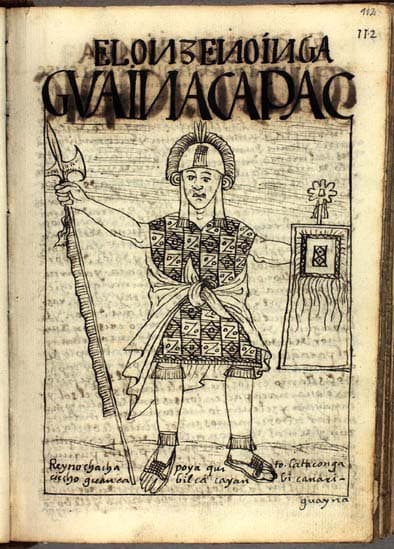 112
112
EL ONZENO INGA
GVAINACAPAC
Reyno chacha poya qui to. lataconga
cicho guanca bilca cayan bi canari-
guayna